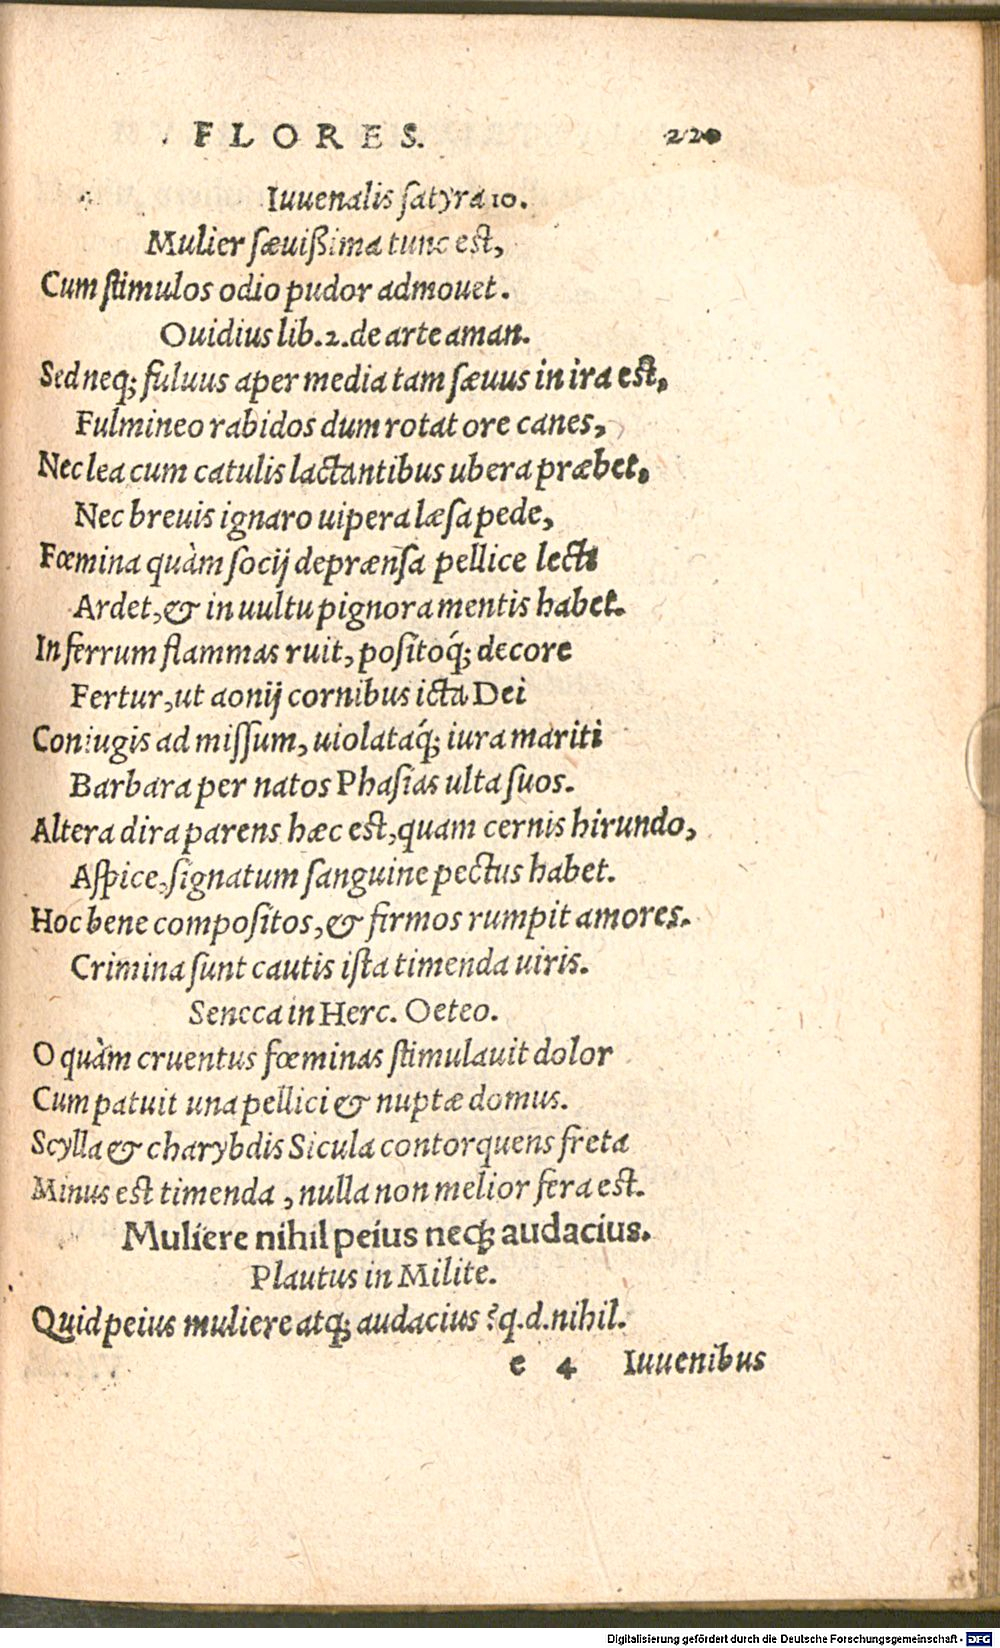 FLORES. 220
Iuuenalis ſatyra 10.
Mulier ſæuißima tunc eſt,
Cum ſtimulos odio pudor admouet.
Ouidius lib. 2. de arte aman.
Sed neq; fuluus aper media tam ſæuus in ira eſt,
Fulmineo rabidos dum rotat ore canes,
Nec lea cum catulis lactantibus ubera præbet,
Nec breuis ignaro uipera læſa pede,
Fœmina quàm ſocij deprænſa pellice lecti
Ardet, & in uultu pignora mentis habet.
In ferrum flammas ruit, poſitoq́; decore
Fertur, ut aonij cornibus icta Dei
Coniugis admiſſum, uiolataq́; iura mariti
Barbara per natos Phaſias ulta ſuos.
Altera dira parens hæc eſt, quam cernis hirundo,
Aſpice, ſignatum ſanguine pectus habet.
Hoc bene compoſitos, & firmos rumpit amores.
Crimina ſunt cautis iſta timenda uiris.
Seneca in Herc. Oeteo.
O quàm cruentus fœminas ſtimulauit dolor
Cum patuit una pellici & nuptæ domus.
Scylla & charybdis Sicula contorquens freta
Minus eſt timenda, nulla non melior fera eſt.
Muliere nihil peius neq; audacius.
Plautus in Milite.
Quid peius muliere atq; audacius? q.d. nihil.
e 4 Iuuenibus
Digitalisierung gefördert durch die Deutsche Forschungsgemeinschaft - DFG